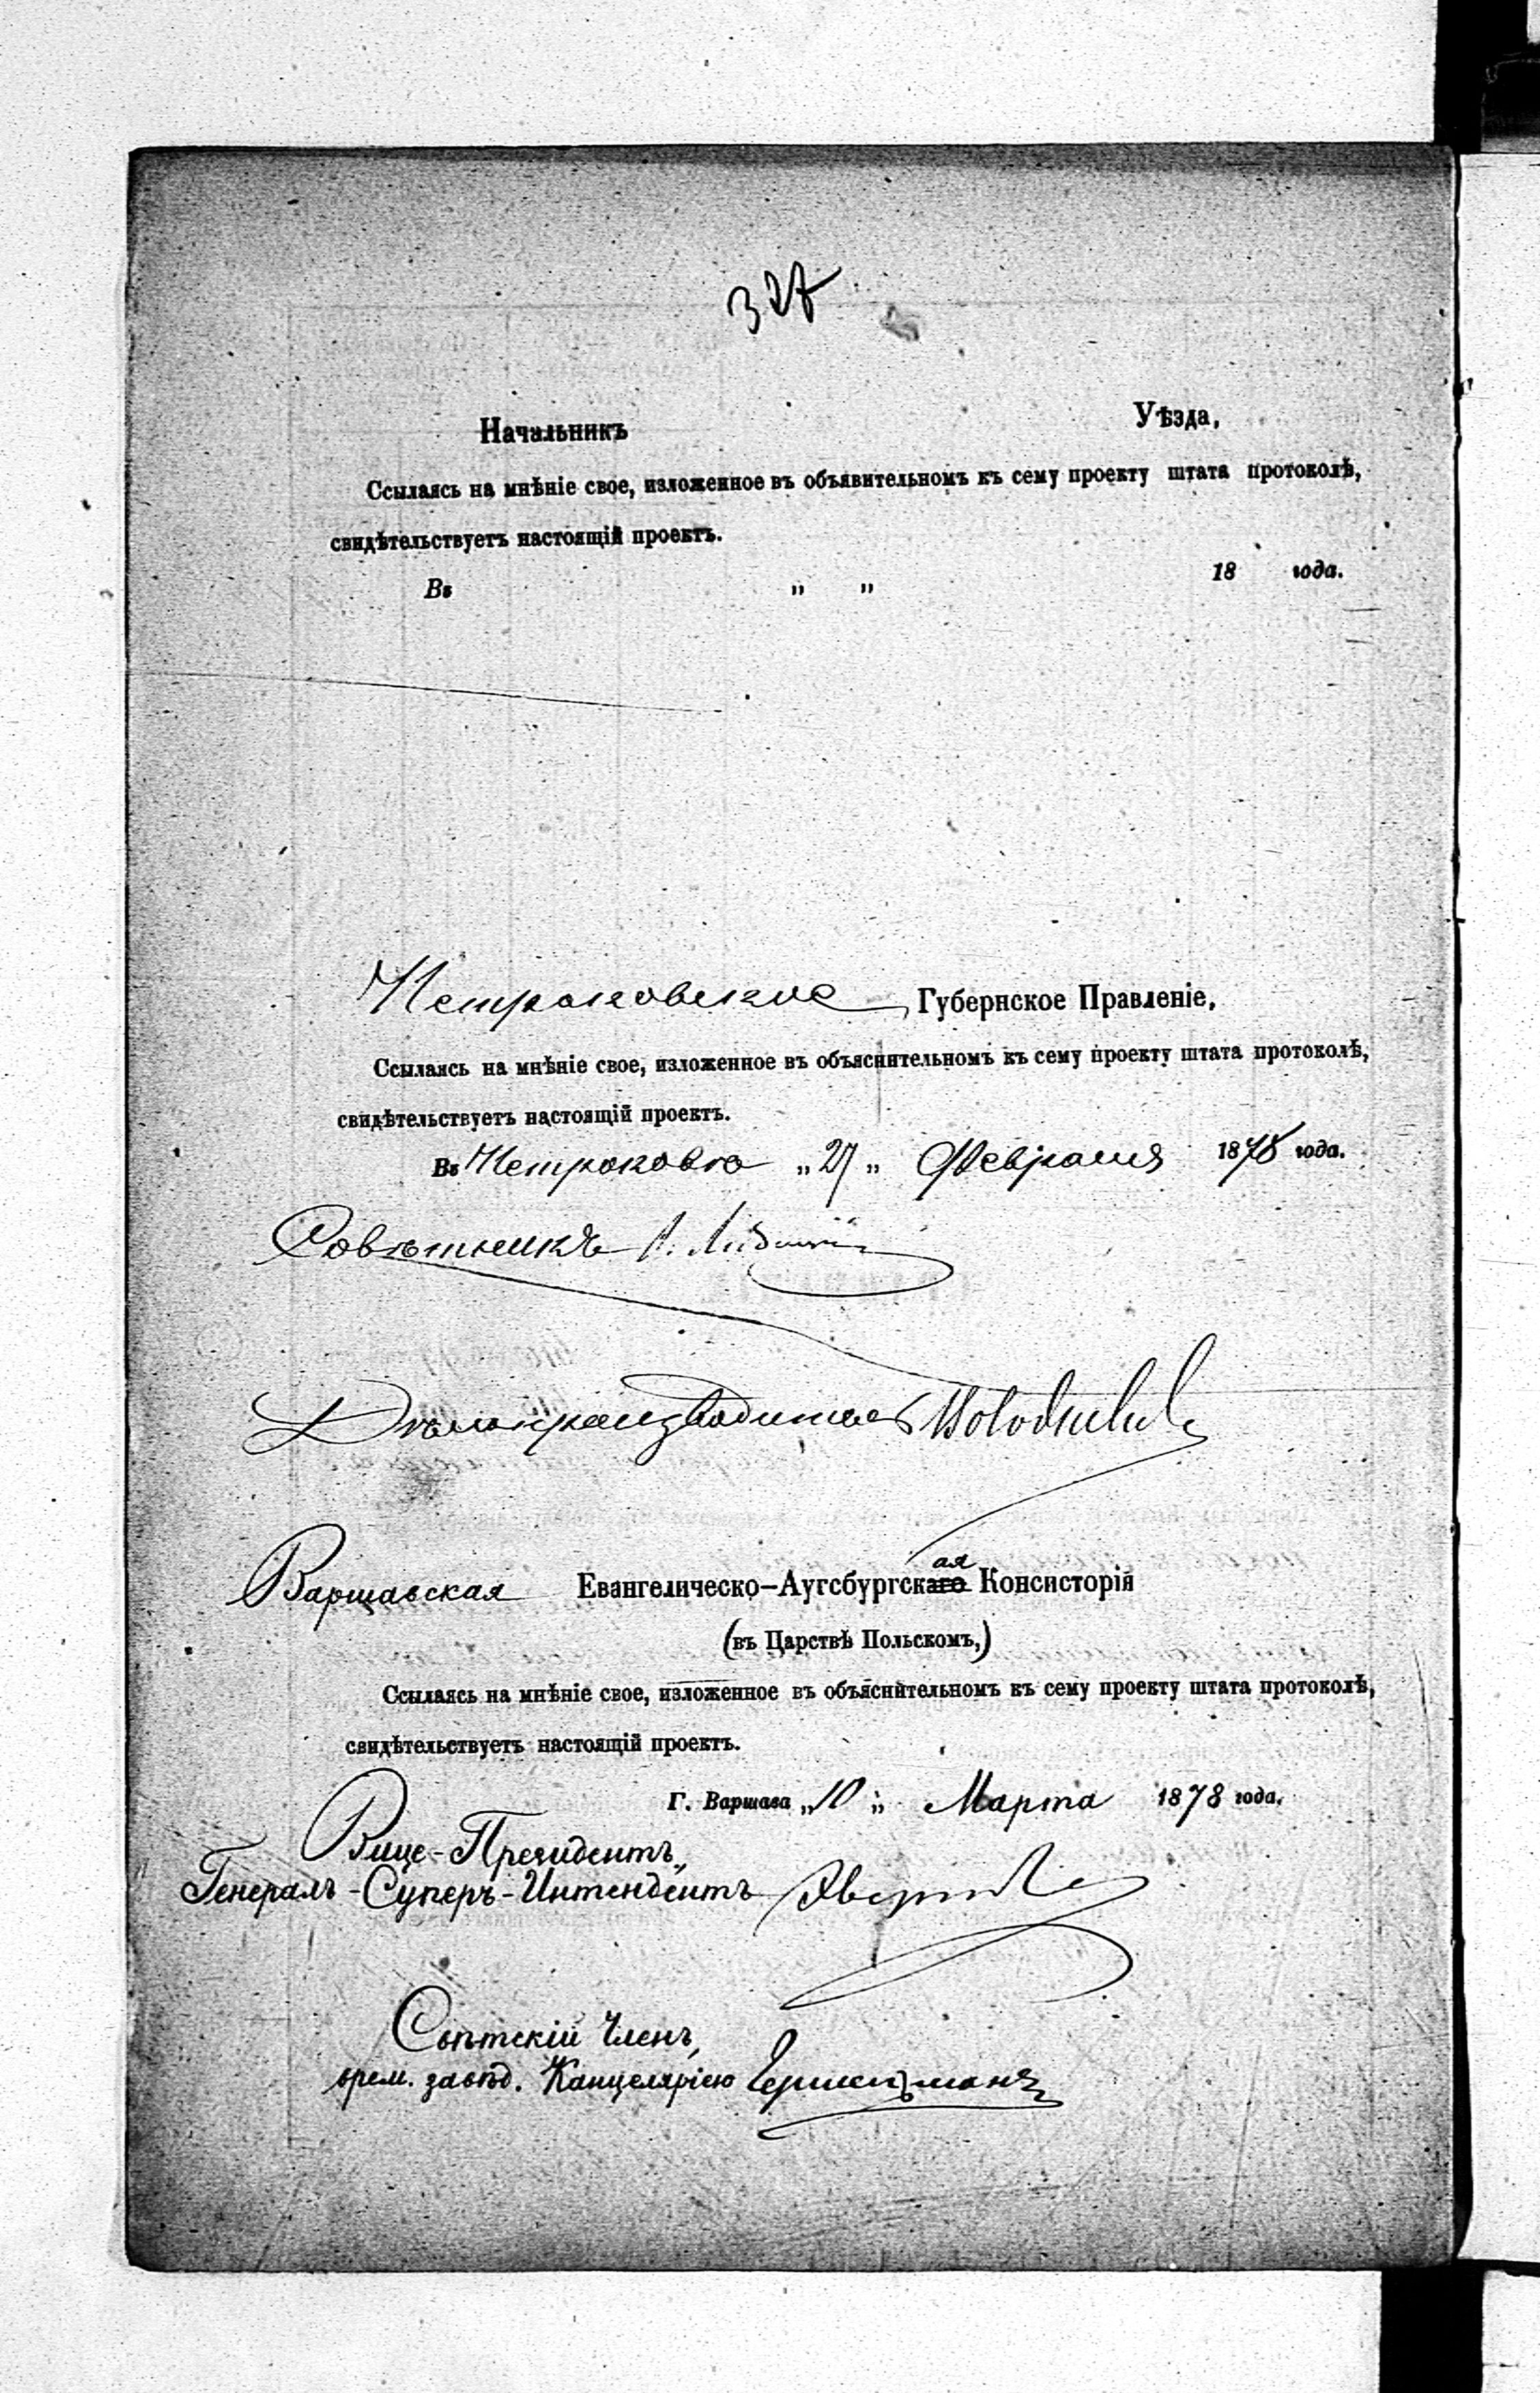 327
Начальникъ Уѣзда,
Ссылаясь на мнѣніе свое, изложенное въ объявительномъ къ сему проекту штата протоколѣ,
свидѣтельствуетъ настоящій проектъ.
Въ „ „ 18 года.
Петроковское Губернское Правленіе,
Ссылаясь на мнѣніе свое, изложенное въ объяснительномъ къ сему проекту штата протоколѣ,
свидѣтельствуетъ настоящій проектъ.
Въ Петроковѣ „27„ Февраля 1878 года.
Совѣтникъ
Дѣлопроизводитель
ая
Варшавская Евангелическо-Аугсбургскаго Консисторія
(въ Царствѣ Польскомъ,)
Ссылаясь на мнѣніе свое, изложенное въ объяснительномъ къ сему проекту штата протоколѣ,
свидѣтельствуетъ настоящій проектъ.
Г. Варшава „10„ Марта 1878 года.
Вице-Президентъ,
Генералъ-Суперъ-Интендентъ
Свѣтскій Членъ,
врем. завѣд. Канцеляріею